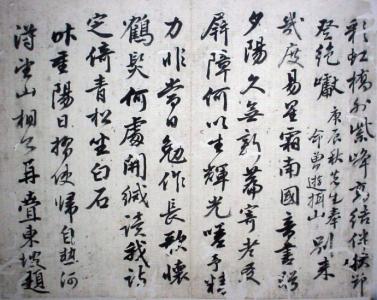 彩虹橋外紫峰高結伴
登絶巘 庚辰秋先生奉 命曾遊山 別來
幾度易星霜南國音書
夕陽久無新篇寄老友
屏障何以生輝光嗟予精
力非當日勉作長歌懷
鶴髮何處開緘讀我詩
定倚青松坐白石
昨重陽日摺使歸自熱河
得望山相公再疊東坡題